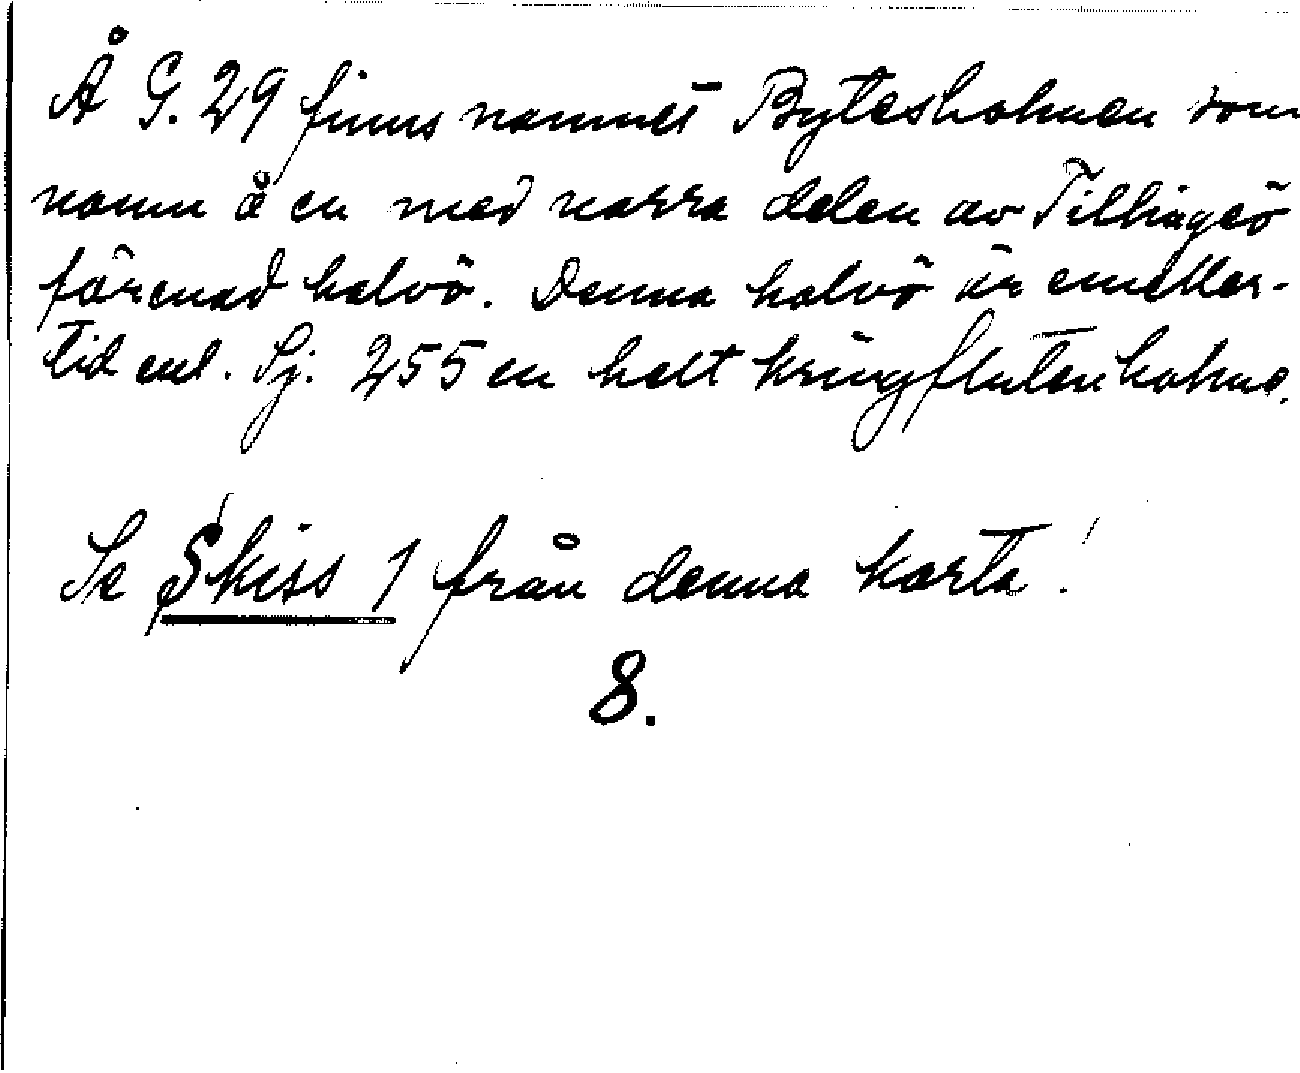 Å G. 29 finns namnet Bytesholmen som
namn å en med norra delen av Tillingeö
förenad halvö. Denna halvö är emeller-
tid enl. Sj. 255 en helt kringfluten holme.
Se Skiss 1 från denna karta!
8.